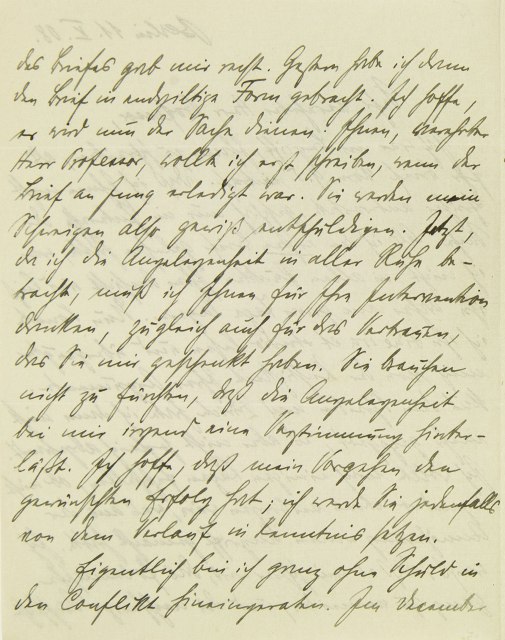 des Briefes gab mir recht. Gestern habe ich denn
den Brief in endgiltige Form gebracht. Ich hoffe,
er wird nun der Sache dienen. Ihnen, verehrter
Herr Professor, wollte ich erst schreiben, wenn der
Brief an Jung erledigt war. Sie werden mein
Schweigen also gewiß entschuldigen. Jetzt,
da ich die Angelegenheit in aller Ruhe be-
trachte, muß ich Ihnen für Ihre Intervention
danken, zugleich auch für das Vertrauen,
das Sie mir geschenkt haben. Sie brauchen
nicht zu fürchten, daß die Angelegenheit
bei mir irgend eine Verstimmung hinter-
läßt. Ich hoffe, daß mein Vorgehen den
gewünschten Erfolg hat; ich werde Sie jedenfalls
von dem Verlauf in Kenntnis setzen.
Eigentlich bin ich ganz ohne Schuld in
den Conflikt hineingeraten. Im Dezember